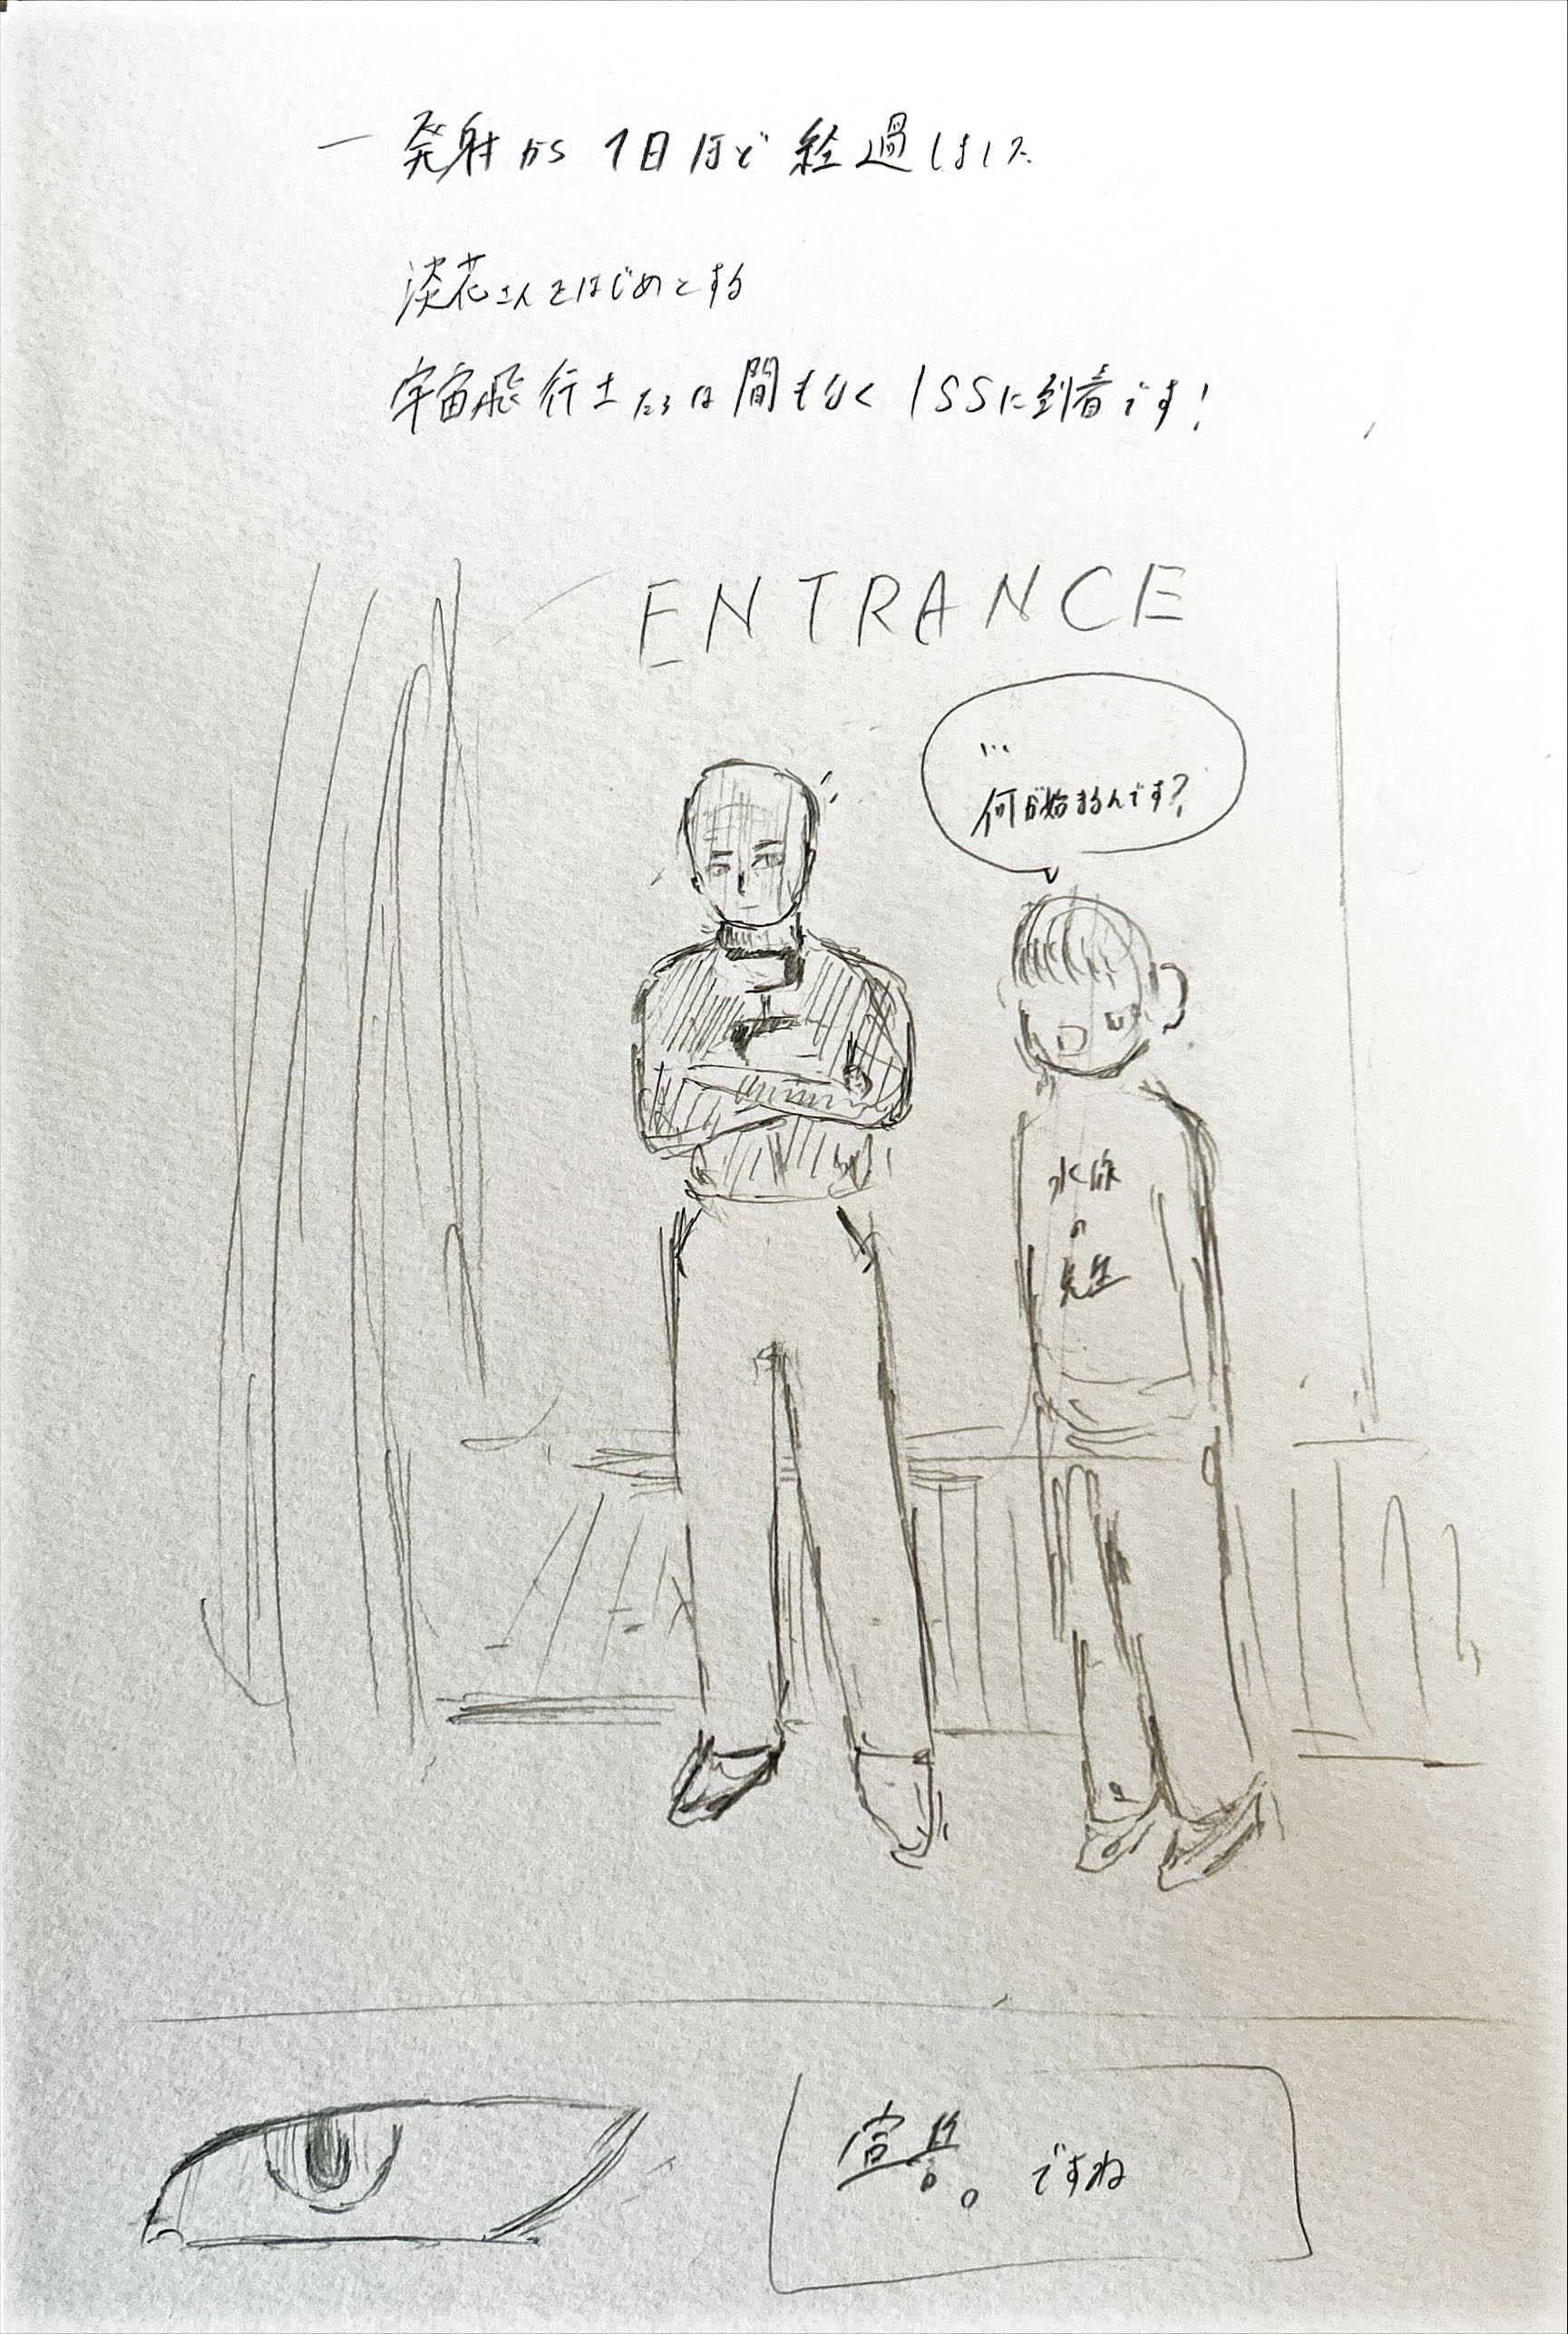 一 発射から1日ほど経過しました
淡花さんをはじめとする
宇宙飛行士たちは間もなくISSに到着です!
ENTRANCE
...
何が始まるんです?
水族
の
先生
ですね